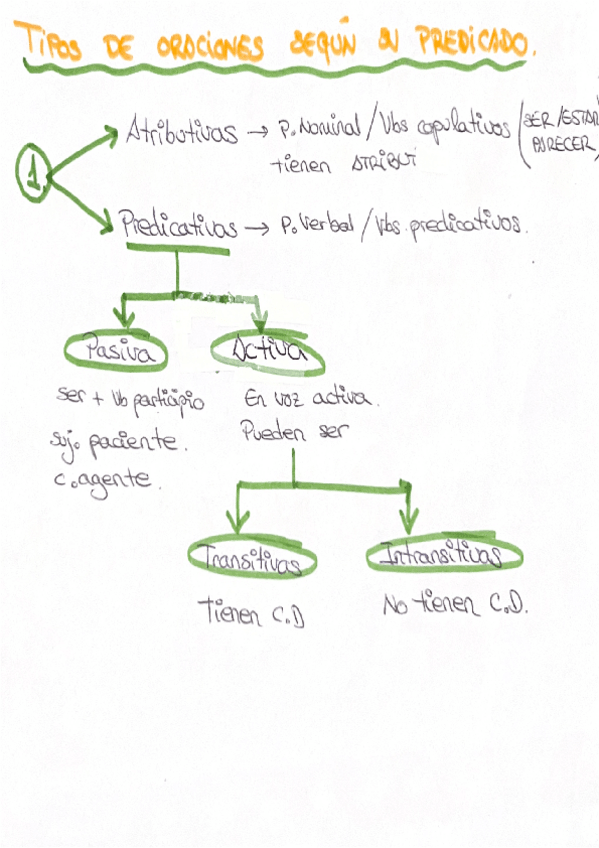 TIPOS DE ORACIONES SEGÚN SU PREDICADO.
1
Atributivas → P. Nominal / Vbs copulativos (SER / ESTAR
PARECER)
tienen ATRIBUT
Predicativas → P. Verbal / Vbs. predicativos.
Pasiva
Activa
Ser + Vb participio
En voz activa.
Suj. paciente.
Pueden ser
C. agente.
Transitivas
Intransitivas
Tienen C.D
No tienen C.D.